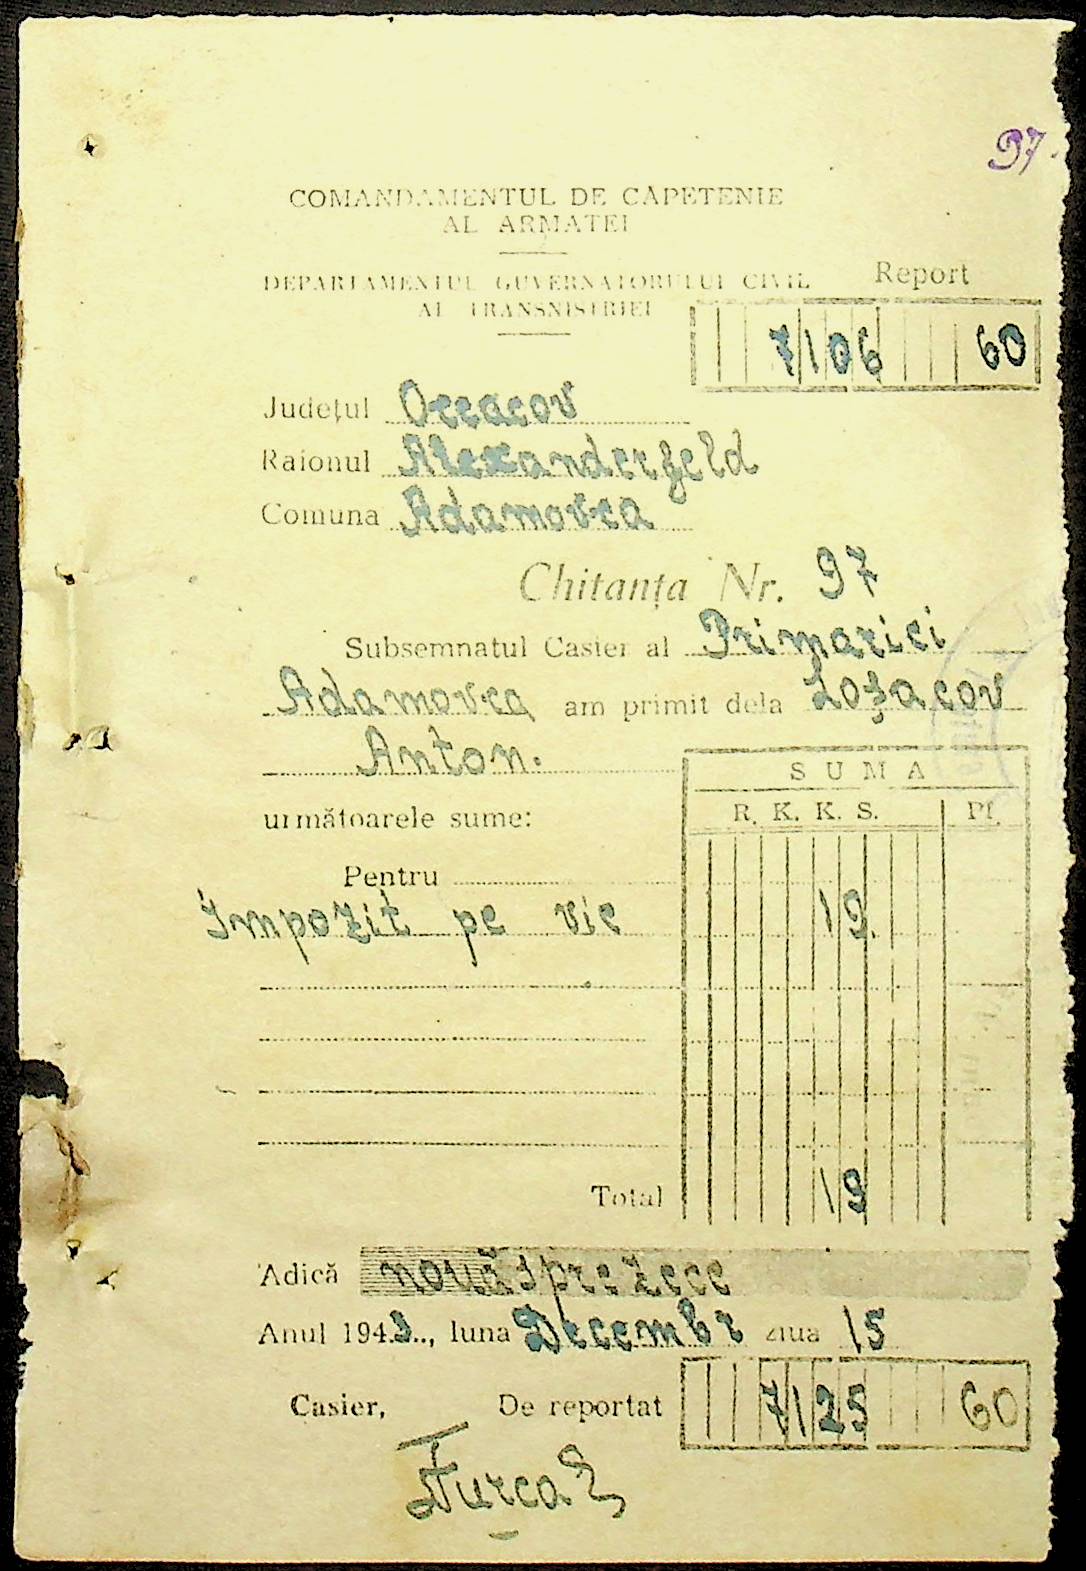 97.
COMANDAMENTUL DE CĂPETENIE
AL ARMATEI
DEPARTAMENTUL GUVERNATORULUI CIVIL
AL TRANSNISTRIEI
Report
7106 60
Județul Oceacov
Raionul Alexanderfeld
Comuna Adamovca
Chitanța Nr. 97
Subsemnatul Casier al Primariei
Adamovca am primit dela Loșacov
Anton.
următoarele sume:
SUMA
R. K. K. S. Pf.
Pentru
Impozit pe vie 19.
Total 19
Adică nouăsprezece
Anul 1943.., luna Decembr ziua 15
Casier, De reportat 7125 60